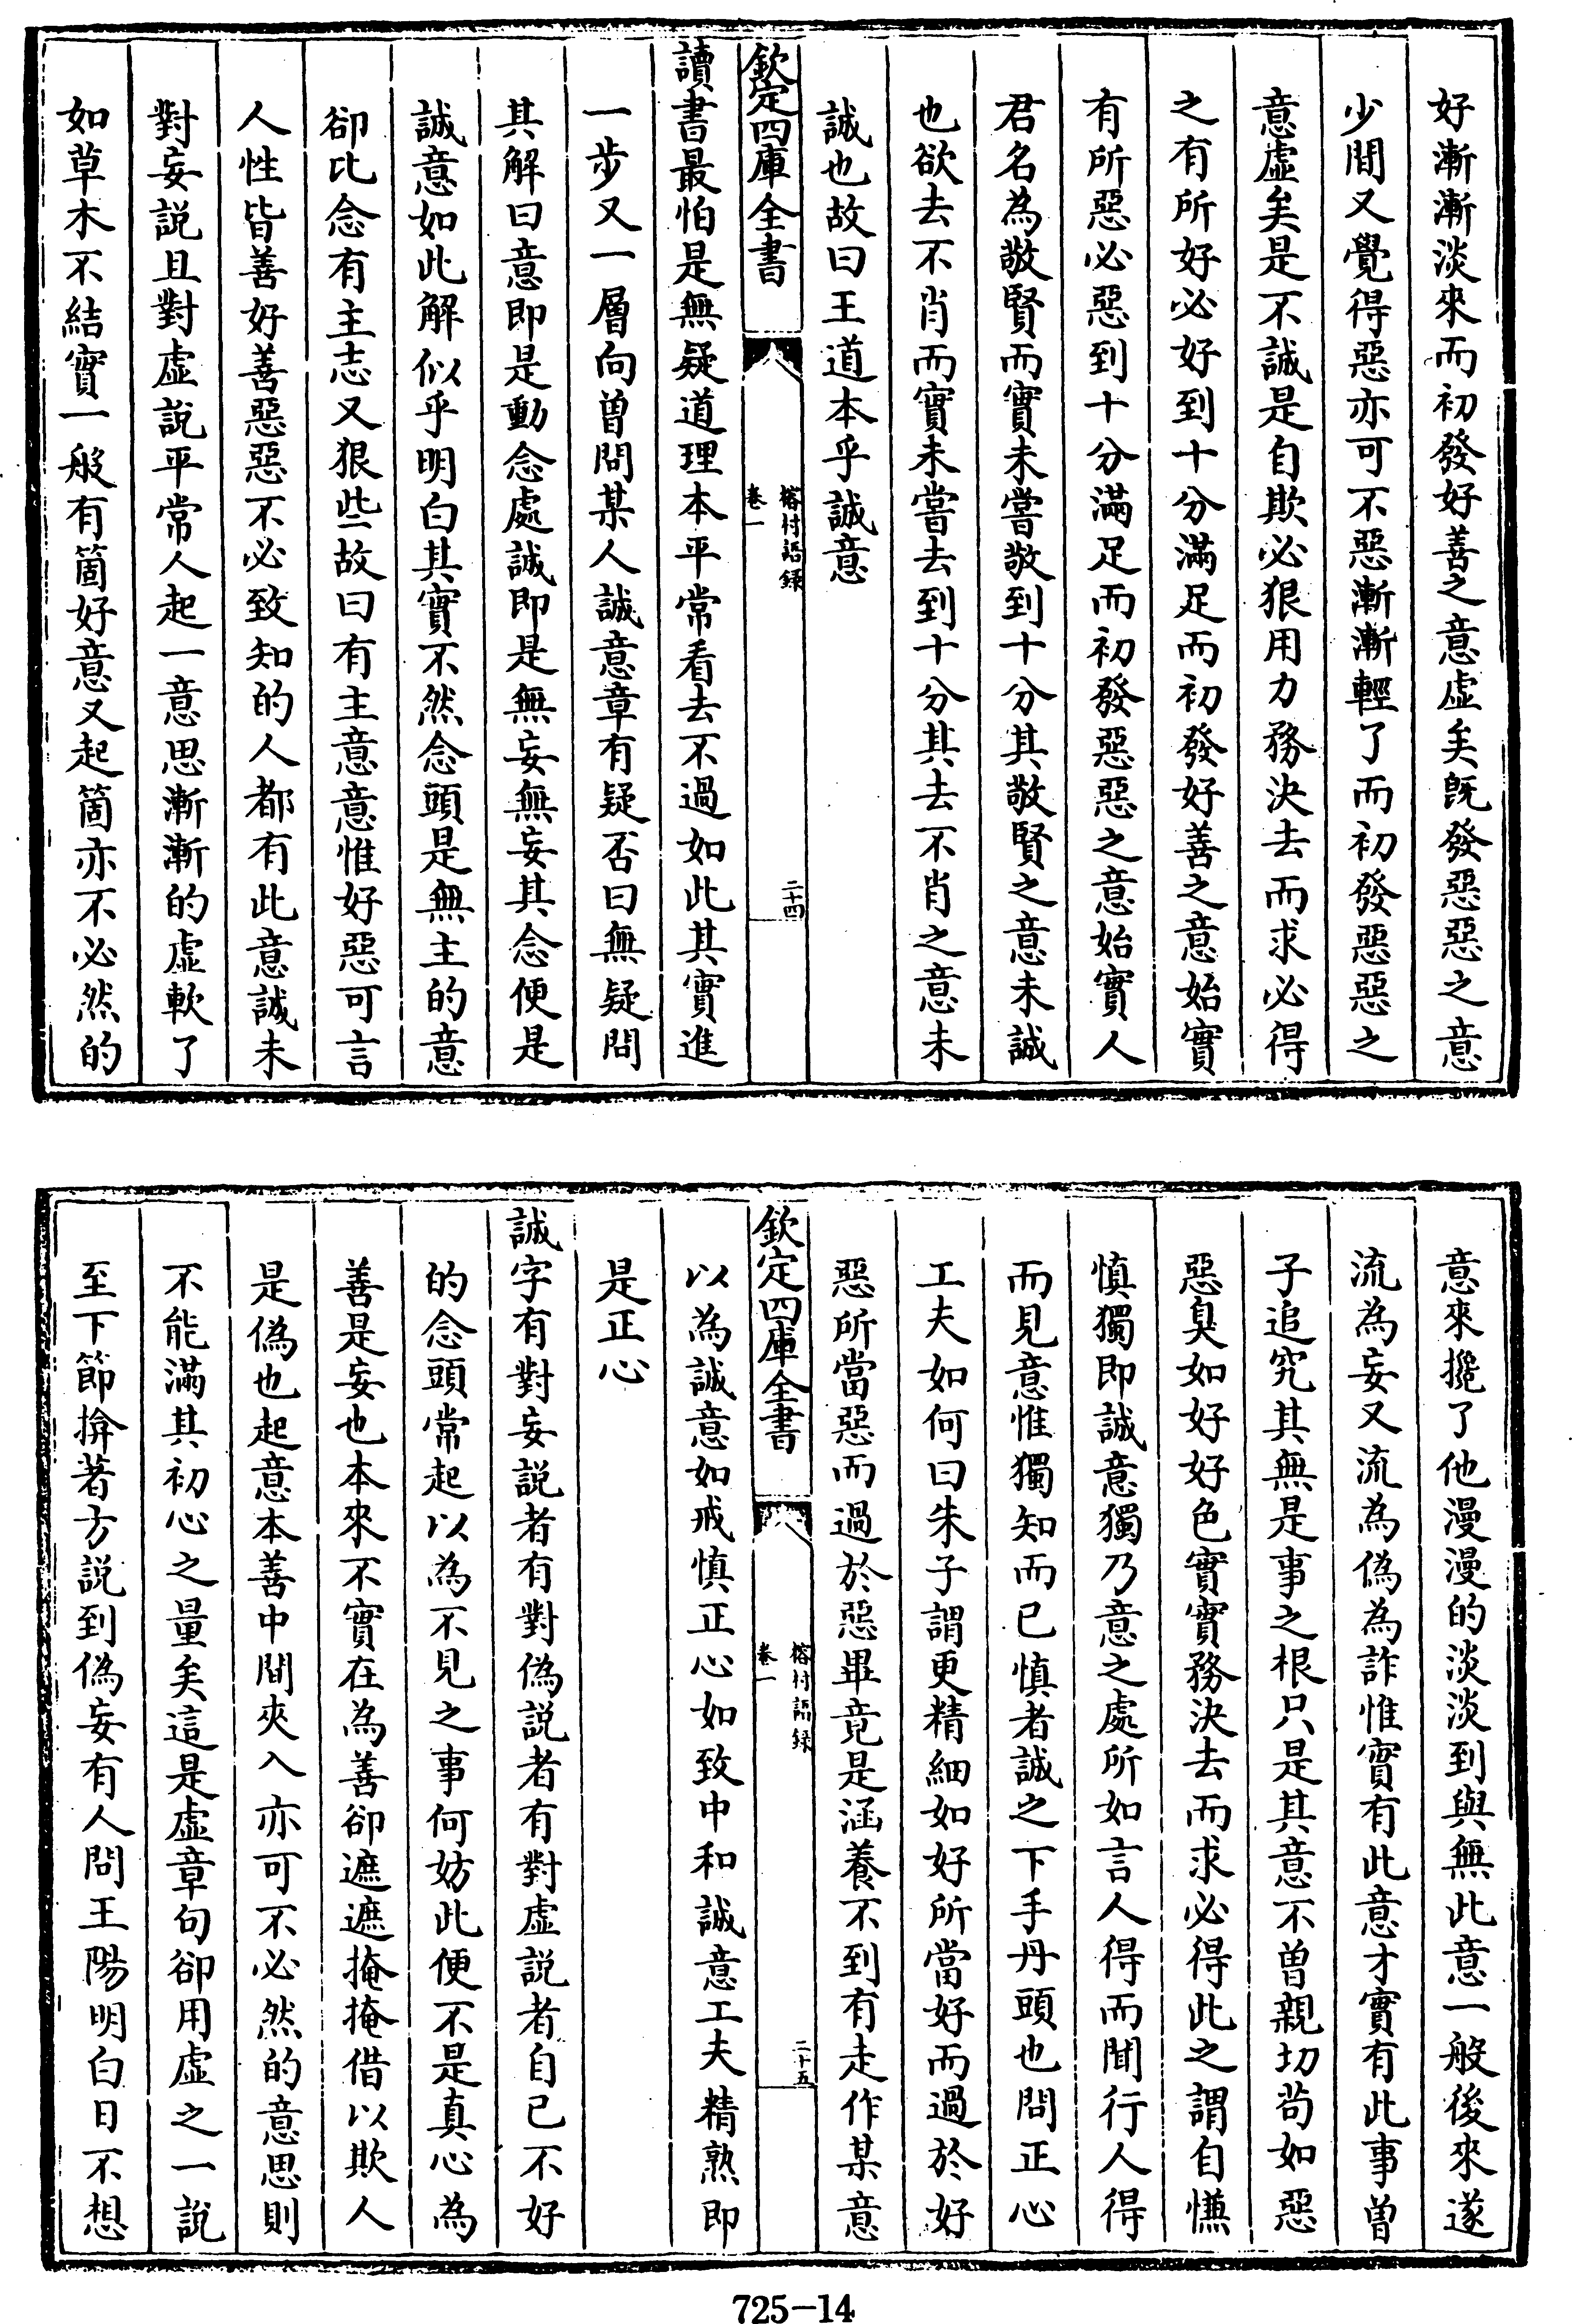 好漸漸淡來而初發好善之意虛矣旣發惡惡之意
少間又覺得惡亦可不惡漸漸輕了而初發惡惡之
意虛矣是不誠是自欺必狠用力務決去而求必得
之有所好必好到十分滿足而初發好善之意始實
有所惡必惡到十分滿足而初發惡惡之意始實人
君名為敬賢而實未嘗敬到十分其敬賢之意未誠
也欲去不肖而實未嘗去到十分其去不肖之意未
誠也故曰王道本乎誠意
欽定四庫全書
榕村語録
卷一
二十四
讀書最怕是無疑道理本平常看去不過如此其實進
一步又一層向曾問某人誠意章有疑否曰無疑問
其解曰意即是動念處誠即是無妄無妄其念便是
誠意如此解似乎明白其實不然念頭是無主的意
卻比念有主志又狠些故曰有主意意惟好惡可言
人性皆善好善惡惡不必致知的人都有此意誠未
對妄説且對虛説平常人起一意思漸漸的虛軟了
如草木不結實一般有箇好意又起箇亦不必然的
意來攙了他漫漫的淡淡到與無此意一般後來遂
流為妄又流為偽為詐惟實有此意才實有此事曾
子追究其無是事之根只是其意不曾親切茍如惡
惡臭如好好色實實務決去而求必得此之謂自慊
慎獨即誠意獨乃意之處所如言人得而聞行人得
而見意惟獨知而已慎者誠之下手丹頭也問正心
工夫如何曰朱子謂更精細如好所當好而過於好
惡所當惡而過於惡畢竟是涵養不到有走作某意
欽定四庫全書
榕村語録
卷一
二十五
以為誠意如戒慎正心如致中和誠意工夫精熟即
是正心
誠字有對妄説者有對偽説者有對虛説者自已不好
的念頭常起以為不見之事何妨此便不是真心為
善是妄也本來不實在為善卻遮遮掩掩借以欺人
是偽也起意本善中間夾入亦可不必然的意思則
不能滿其初心之量矣這是虛章句卻用虛之一説
至下節揜著方説到偽妄有人問王陽明白日不想
725-14